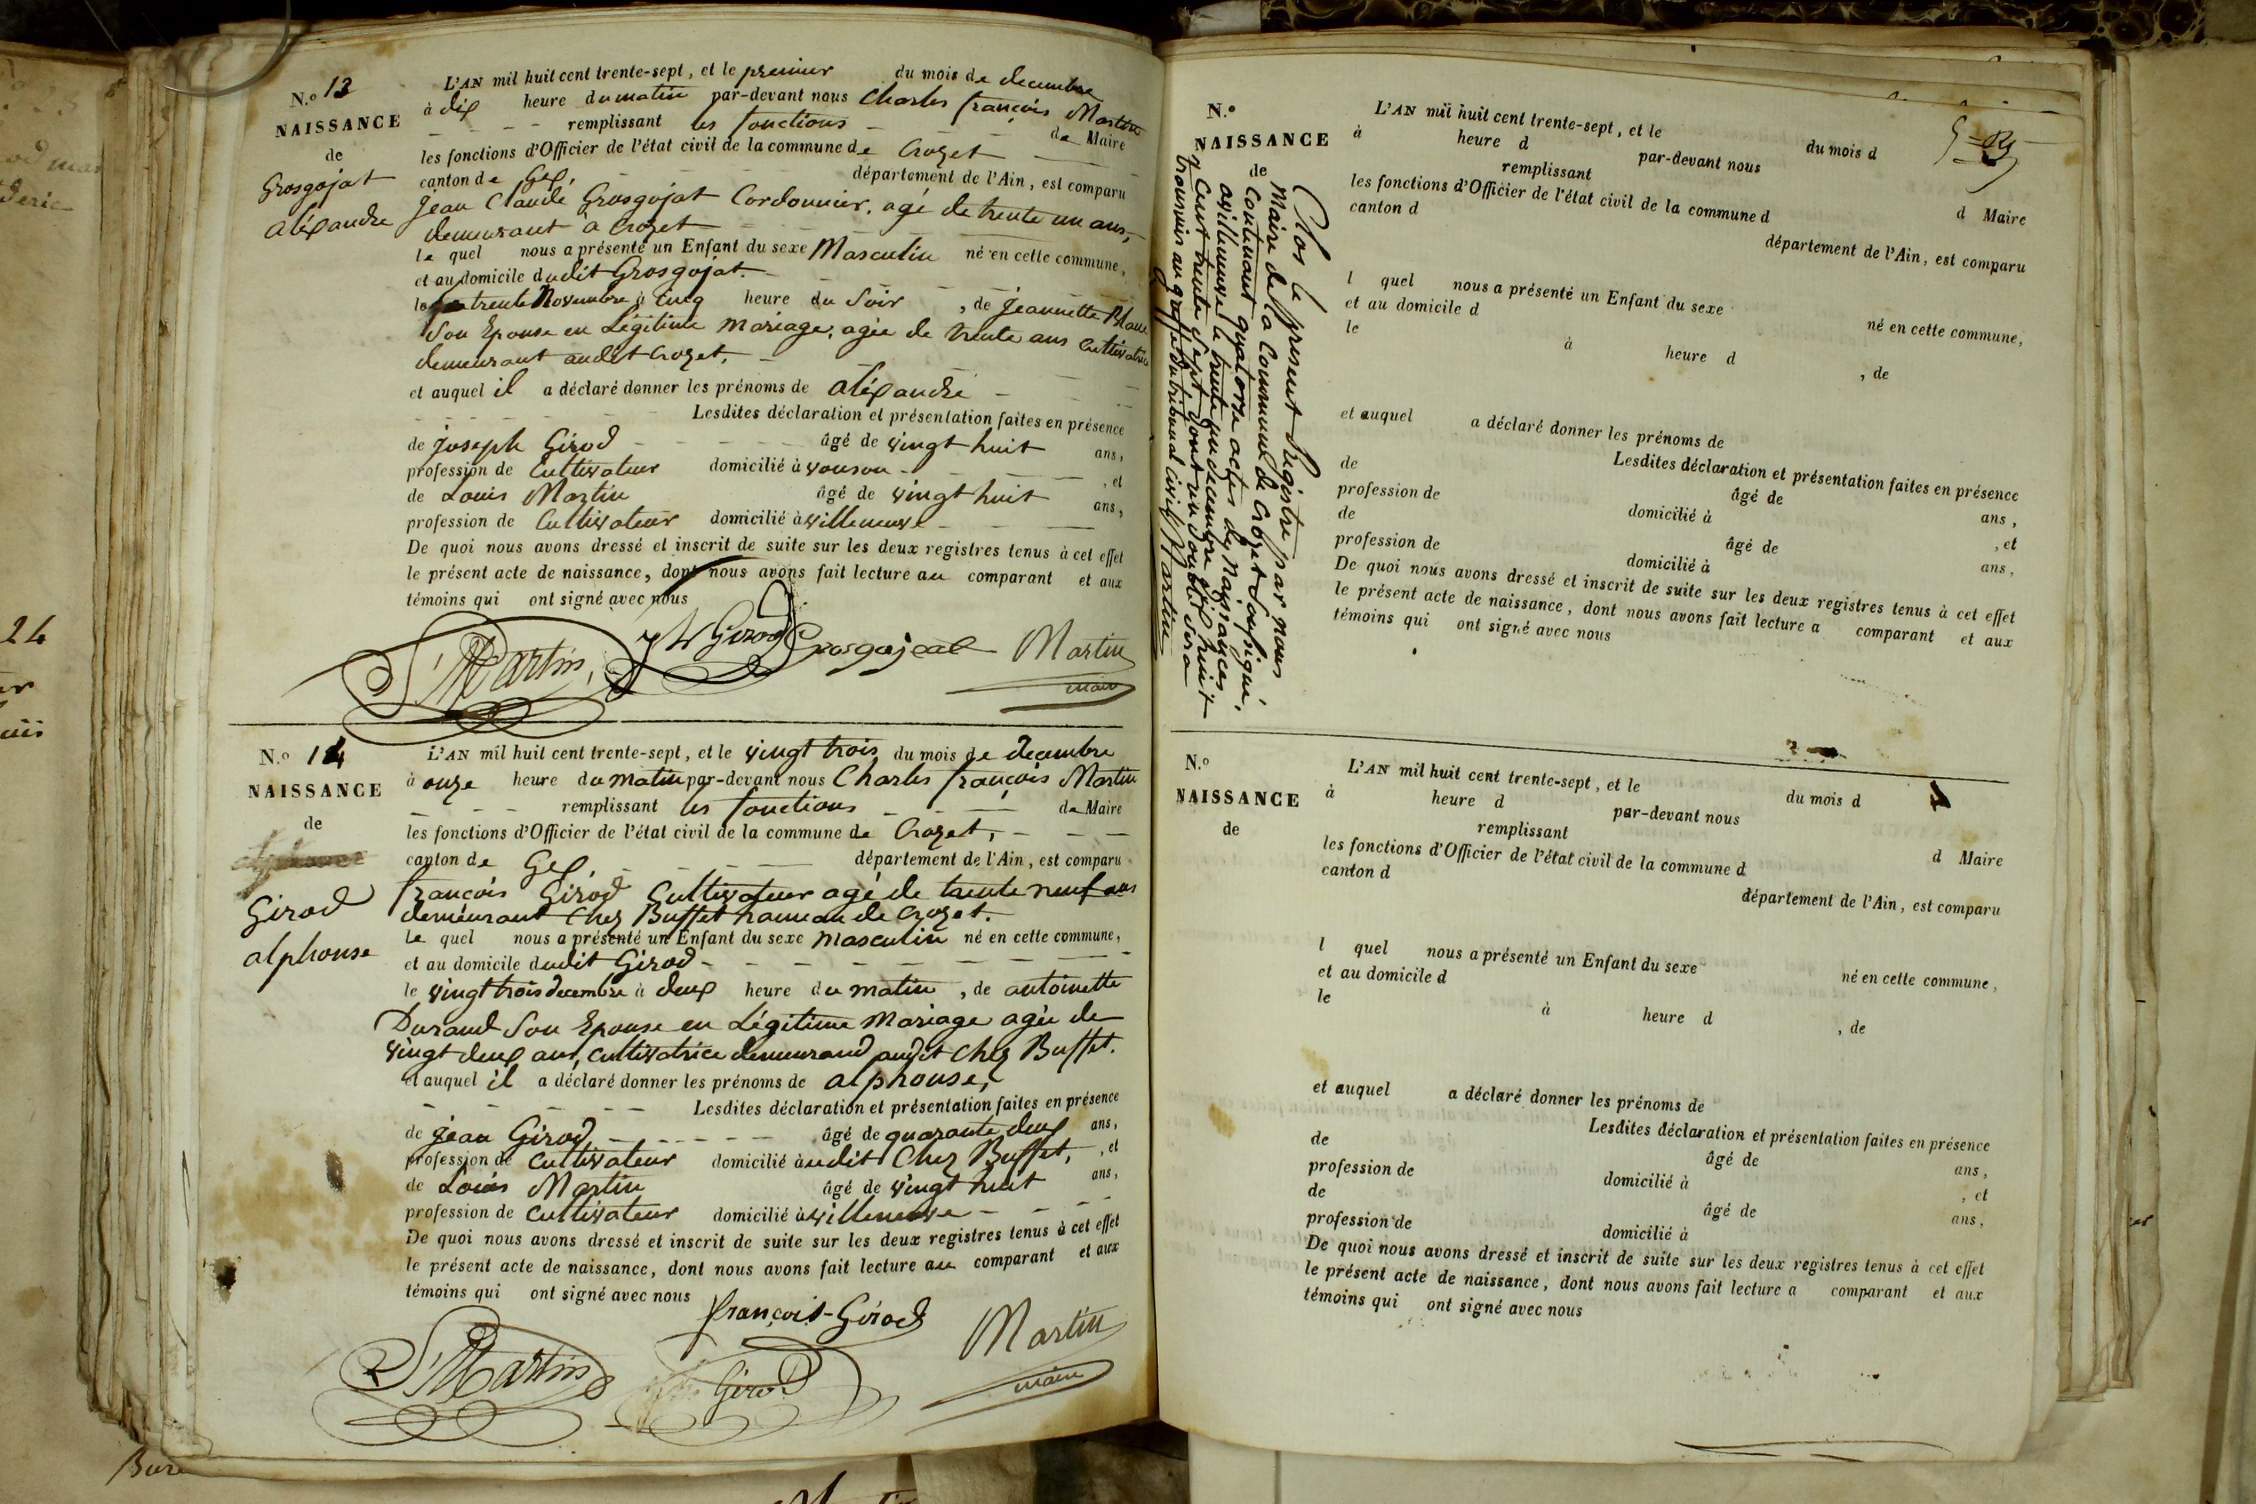 N.o 13
NAISSANCE
de
Grosgojat
Aléxandre
L'AN mil huit cent trente-sept, et le premier du mois de decembre
à dix heure du matin par-devant nous Charles françois Martin
remplissant les fonctions de Maire
les fonctions d'Officier de l'état civil de la commune de Crozet
canton de Gex, département de l'Ain, est comparu
Jean Claude Grosgojat Cordonnier, agé de trente un ans,
demeurant à Crozet
le quel nous a présenté un Enfant du sexe Masculin né en cette commune,
et au domicile dudit Grosgojat.
le trente Novembre à cinq heure du Soir, de Jeannette Blanc
Son Epouse en Légitime mariage, agée de trente ans Cultivatrice
demeurant audit Crozet,
et auquel il a déclaré donner les prénoms de aléxandre
Lesdites déclaration et présentation faites en présence
de joseph Girod âgé de vingt huit ans,
profession de Cultivateur domicilié à vouson, et
de Louis Martin âgé de vingt huit ans,
profession de Cultivateur domicilié à villeneuve
De quoi nous avons dressé et inscrit de suite sur les deux registres tenus à cet effet
le présent acte de naissance, dont nous avons fait lecture au comparant et aux
témoins qui ont signé avec nous
Martin, Girod Grosgojeat Martin
maire
N.o 14
NAISSANCE
de
alphonse
Girod
alphonse
L'AN mil huit cent trente-sept, et le vingt trois du mois de decembre
à onze heure du matin par-devant nous Charles françois Martin
remplissant les fonctions de Maire
les fonctions d'Officier de l'état civil de la commune de Crozet,
canton de Gex, département de l'Ain, est comparu
françois Girod Cultivateur agé de trente neuf ans
demeurant Chez Buffet hameau de Crozet.
le quel nous a présenté un Enfant du sexe masculin né en cette commune,
et au domicile dudit Girod
le vingt trois decembre à deux heure du matin, de antoinette
Durand Son Epouse en Légitime Mariage agée de
vingt deux ans, cultivatrice demeurand audit Chez Buffet.
et auquel il a déclaré donner les prénoms de alphonse,
Lesdites déclaration et présentation faites en présence
de jean Girod âgé de quarante deux ans,
profession de cultivateur domicilié audit Chez Buffet, , et
de Louis Martin âgé de vingt huit ans,
profession de cultivateur domicilié à villeneuve
De quoi nous avons dressé et inscrit de suite sur les deux registres tenus à cet effet
le présent acte de naissance, dont nous avons fait lecture au comparant et aux
témoins qui ont signé avec nous
françois-Girod
Martin Girod Martin
maire
Clos le present Registre par nous
Maire de la Commune de Crozet Soussigné,
Contenant quatorze actes de Naissances
avilleneuve le trente un decembre dix huit
Cent trente Sept, dont un double Sera
transmis au greffe du tribunal Civil Martin
N.o
NAISSANCE
de
L'AN mil huit cent trente-sept, et le du mois d
à heure d par-devant nous
remplissant d Maire
les fonctions d'Officier de l'état civil de la commune d
canton d département de l'Ain, est comparu
l quel nous a présenté un Enfant du sexe né en cette commune,
et au domicile d
le à heure d , de
et auquel a déclaré donner les prénoms de
Lesdites déclaration et présentation faites en présence
de âgé de ans,
profession de domicilié à , et
de âgé de ans,
profession de domicilié à
De quoi nous avons dressé et inscrit de suite sur les deux registres tenus à cet effet
le présent acte de naissance, dont nous avons fait lecture a comparant et aux
témoins qui ont signé avec nous
N.o
NAISSANCE
de
L'AN mil huit cent trente-sept, et le du mois d
à heure d par-devant nous
remplissant d Maire
les fonctions d'Officier de l'état civil de la commune d
canton d département de l'Ain, est comparu
l quel nous a présenté un Enfant du sexe né en cette commune,
et au domicile d
le à heure d , de
et auquel a déclaré donner les prénoms de
Lesdites déclaration et présentation faites en présence
de âgé de ans,
profession de domicilié à , et
de âgé de ans,
profession de domicilié à
De quoi nous avons dressé et inscrit de suite sur les deux registres tenus à cet effet
le présent acte de naissance, dont nous avons fait lecture a comparant et aux
témoins qui ont signé avec nous